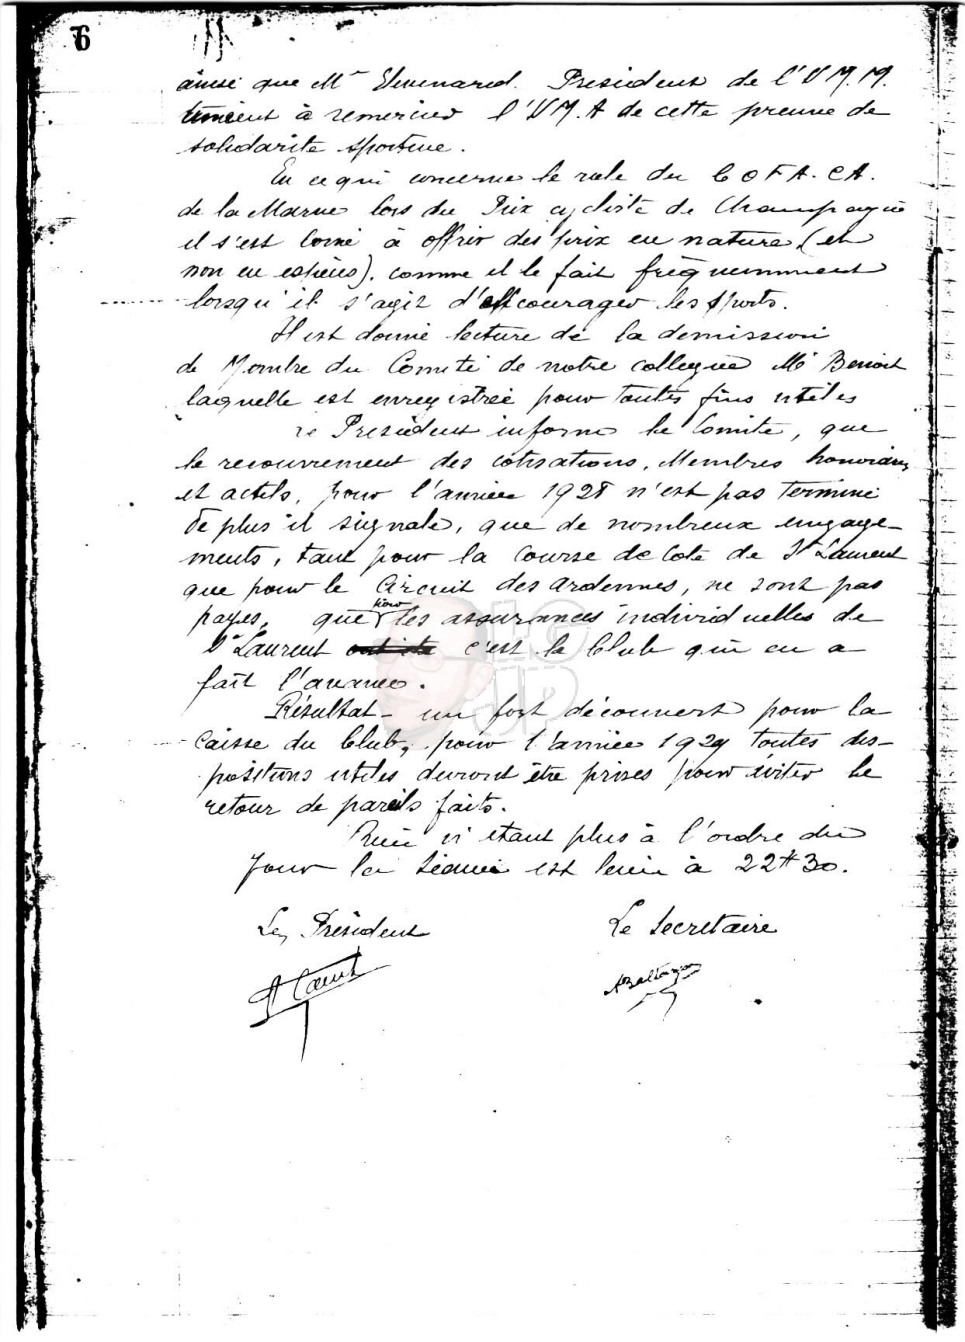 76
ainsi que Mr Président de l'U M. M.
tiennent à remercier l'UM. A de cette preuve de
solidarité sportive.
En ce qui concerne le role du C O F A. CA.
de la Marne lors du Prix cycliste de Champagne
il s'est borné à offrir des prix en nature, (et
non en espèces), comme il le fait fréquemment
lorsqu'il s'agit d'encourager les sports.
Il est donné lecture de la demission
de Membre du Comité de notre collegue Mr Benoit
laquelle est enregistrée pour toutes fins utiles
Le President informe le Comité, que
le recouvrement des cotisations, Membres honoraires
et actifs, pour l'année 1928 n'est pas terminé
De plus il signale, que de nombreux engage-
ments, tant pour la Course de Cote de St Laurent
que pour le Circuit des Ardennes, ne sont pas
payés, que pour les assurances individuelles de
St Laurent c'est le Club qui en a
fait l'avance.
Résultat - un fort découvert pour la
Caisse du Club, pour l'année 1929 toutes dis-
positions utiles devront être prises pour éviter le
retour de pareils faits.
Rien n'étant plus à l'ordre du
jour la Séance est levée à 22H30.
Le Président
Le Secrétaire
LG
JP